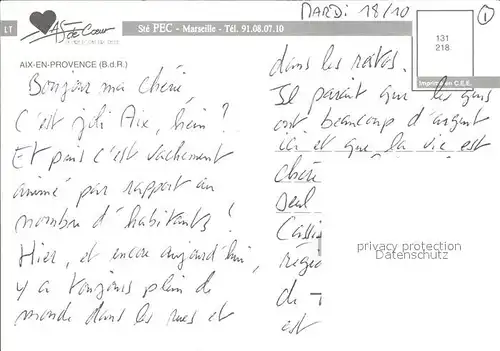 MARDI 18/10
1
LT
AS de Cœur
Sté PEC - Marseille - Tél. 91.08.07.10
131
218
Imprimé en C.E.E.
AIX-EN-PROVENCE (B.d.R.)
Bonjour ma chérie,
C'est joli Aix, hein ?
Et puis c'est vachement
animé par rapport au
nombre d'habitants !
Hier, et encore aujourd'hui,
y a toujours plein de
monde dans les rues et
dans les restos.
Il paraît que les gens
ont beaucoup d'argent
ici et que la vie est
chère
Seul
Cassi
régio
de
est
privacy protection
Datenschutz